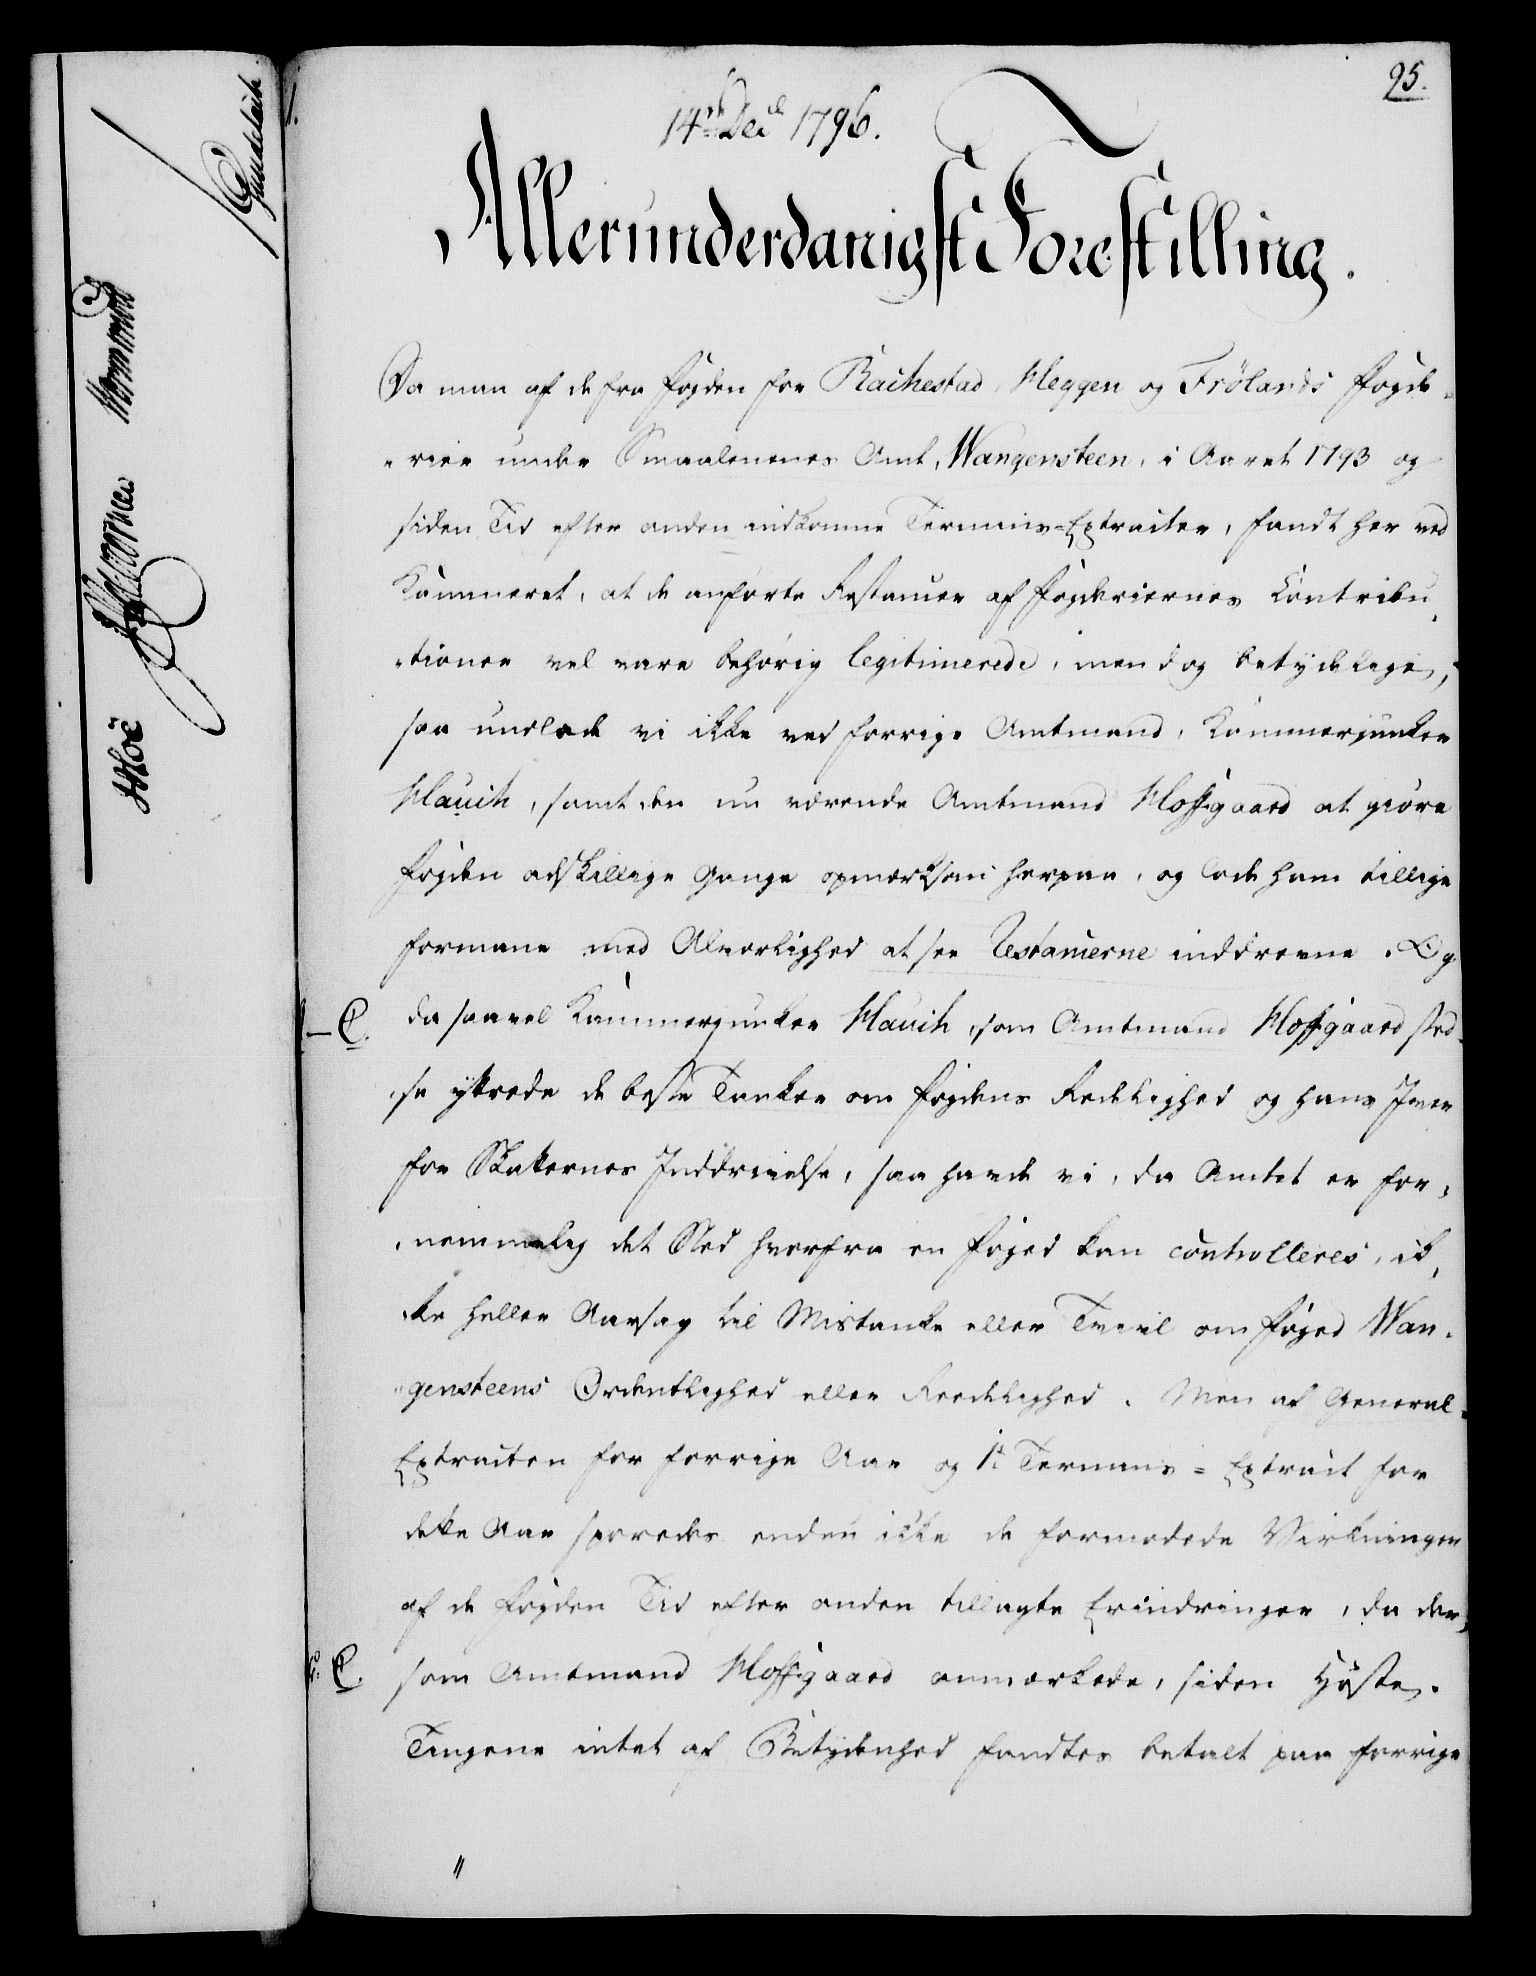 95.
14de Decbr 1796.
Allerunderdanigst Forestilling.
Da man af de fra Fogden for Rachestad, Heggen og Frölands Fogde-
-rier under Smaalenenes Amt, Wangensteen, i Aaret 1793 og
siden Tid efter anden indkomne Termins-Extracter, fandt her ved
Kammeret, at de anførte Restancer af Fogderiernes Contribu-
-tioner vel vare behørig legitimerede, men dog betydelige,
saa undlode vi ikke ved forrige Amtmand, Kammerjunker
Hauch, samt den nu værende Amtmand Hoffgaard at giøre
Fogden adskillige Gange opmærksom herpaa, og lode ham tillige
formane med Alvorlighed at see Restancerne inddrevne. Og
da saavel Kammerjunker Hauch, som Amtmand Hoffgaard sted-
-se yttrede de beste Tanker om Fogdens Redelighed og hans Iver
for Skatternes Inddrivelse, saa havde vi, da Amtet er for-
-nemmelig det Sted hvorfra en Foged kan controlleres, ik-
-ke heller Aarsag til Mistanke eller Tvivl om Foged Wan-
-gensteens Ordentlighed eller Reedelighed. Men af General-
Extracten for forrige Aar og 1te Termins-Extract for
dette Aar sporedes endnu ikke de formodede Virkninger
af de Fogden Tid efter anden tillagte Erindringer, da der,
som Amtmand Hoffgaard anmærkede, siden Høste-
Tingene intet af Betydenhed fandtes betalt paa forrige
C.
C.
Hoë
Wormskiold